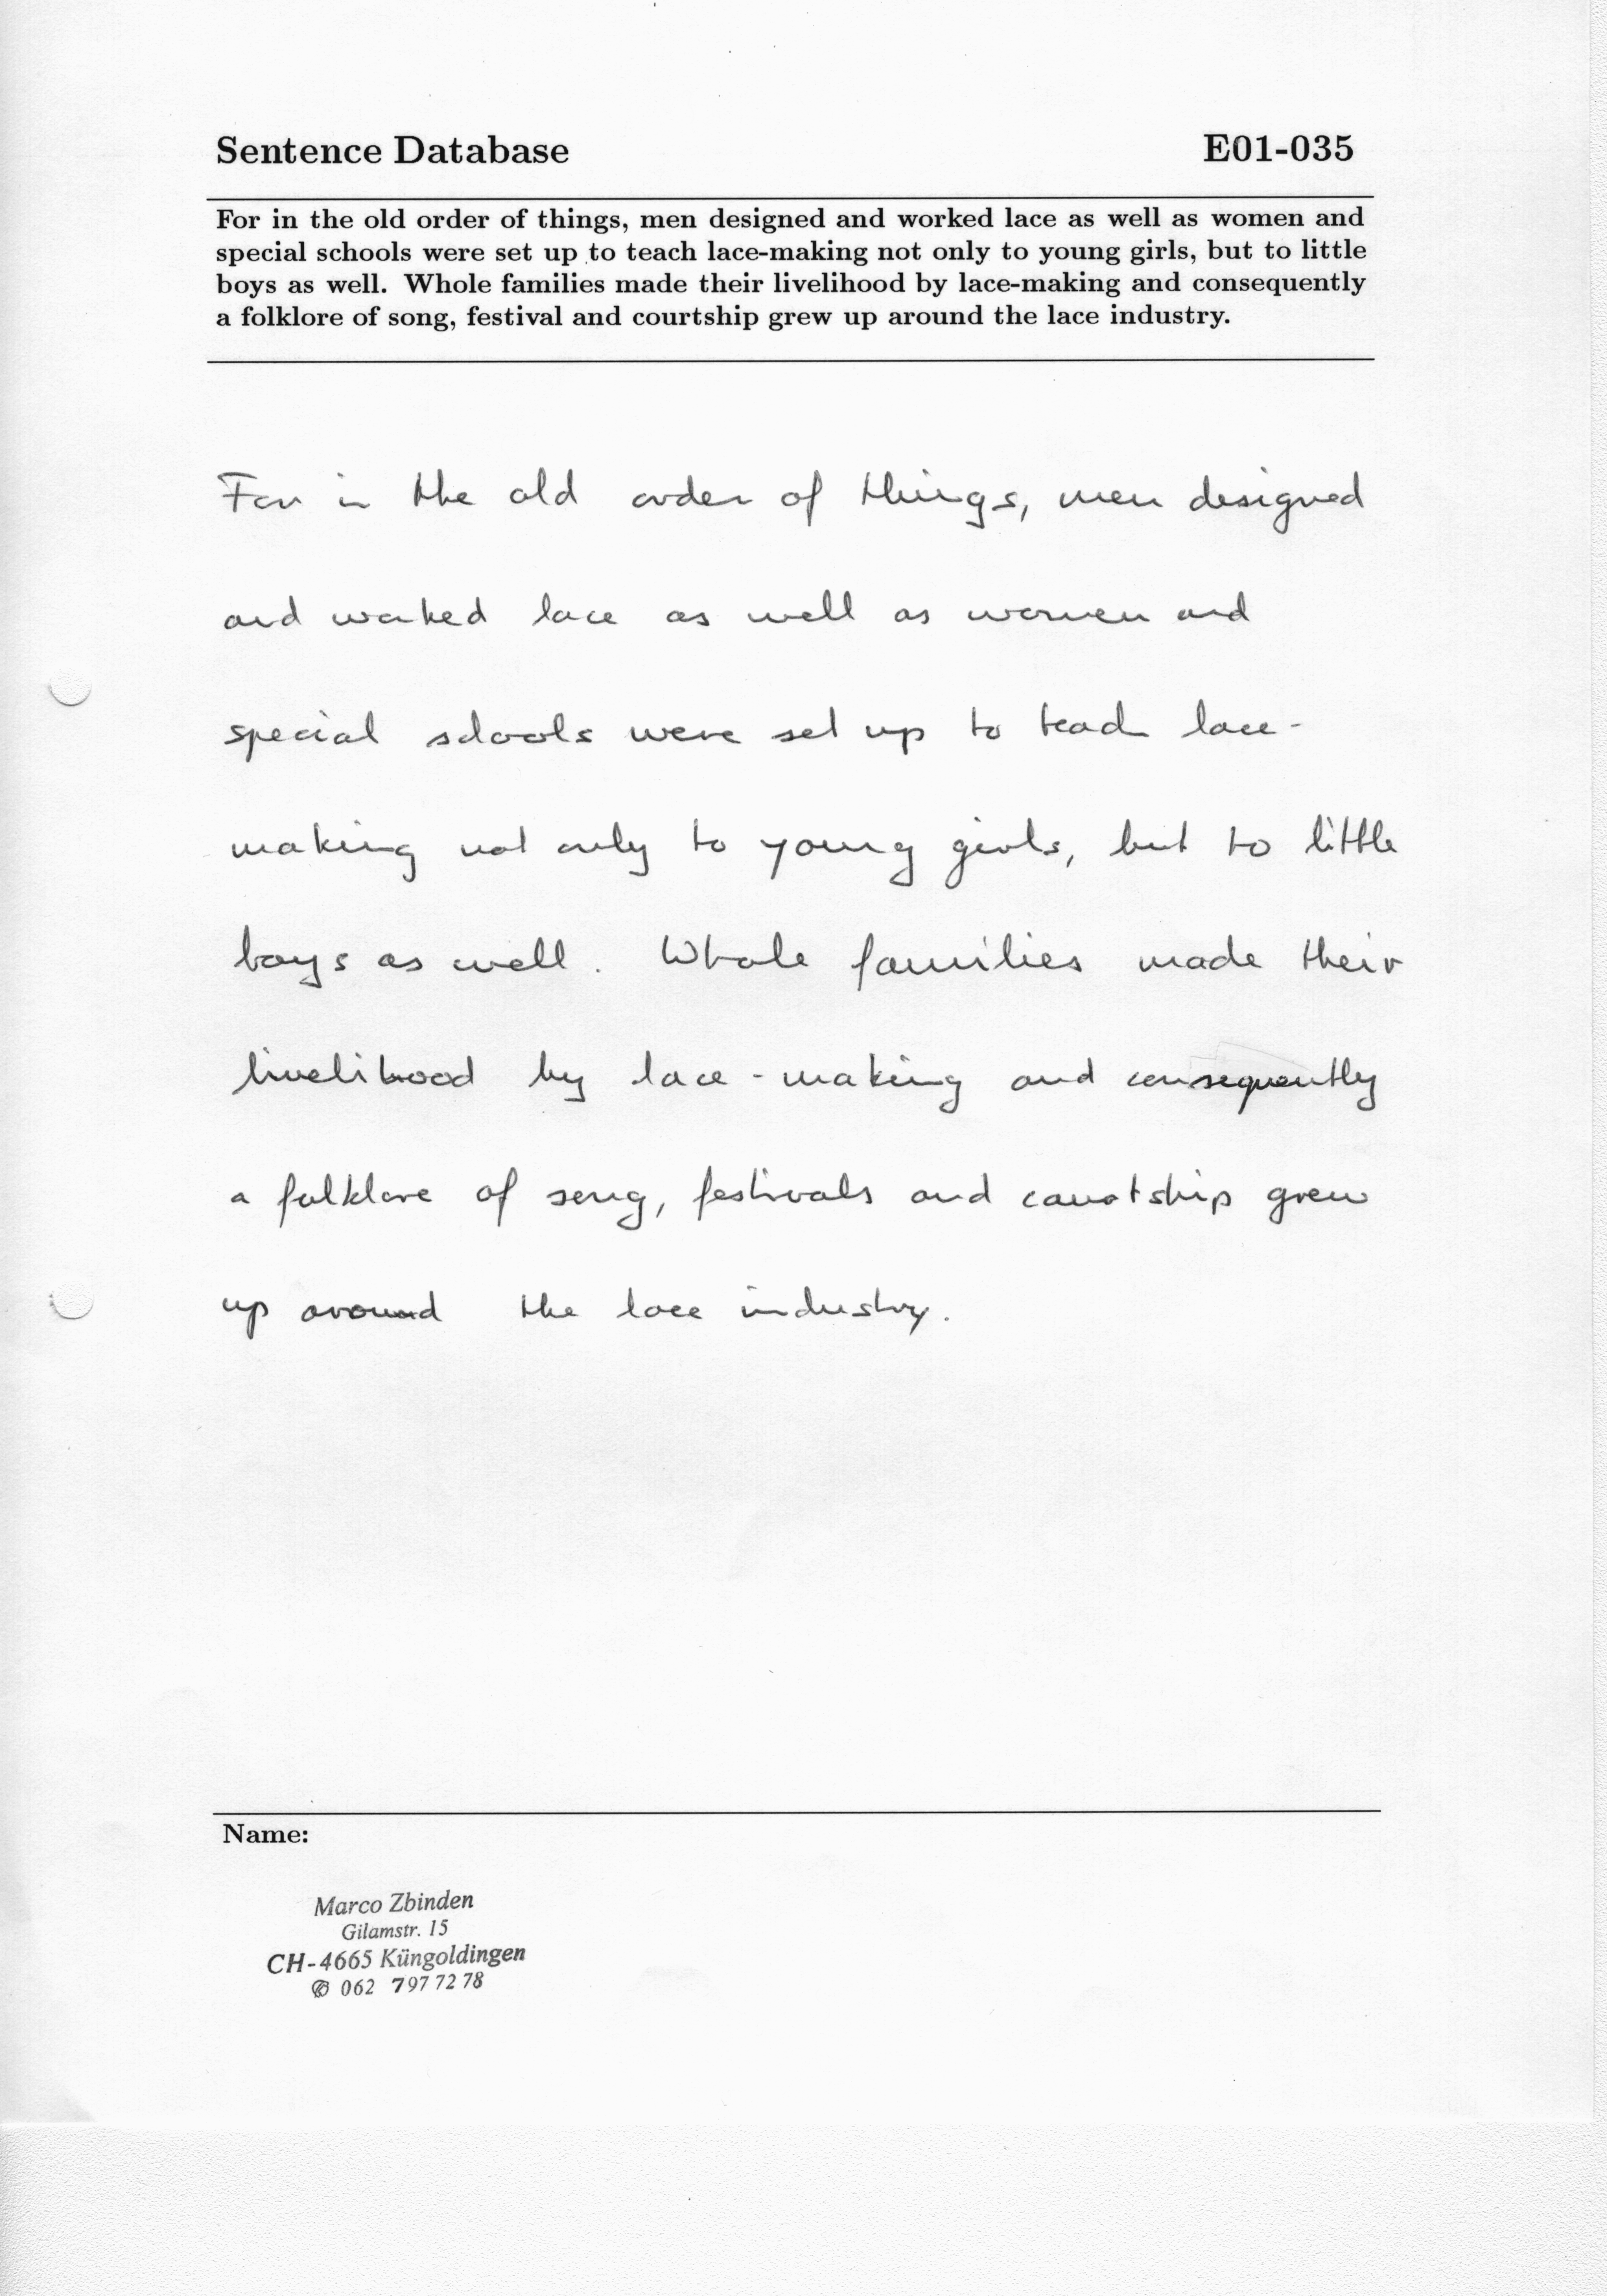 Sentence Database E01-035
For in the old order of things, men designed and worked lace as well as women and
special schools were set up to teach lace-making not only to young girls, but to little
boys as well. Whole families made their livelihood by lace-making and consequently
a folklore of song, festival and courtship grew up around the lace industry.
For in the old order of things, men designed
and worked lace as well as women and
special schools were set up to teach lace-
making not only to young girls, but to little
boys as well. Whole families made their
livelihood by lace-making and consequently
a folklore of song, festivals and courtship grew
up around the lace industry.
Name:
Marco Zbinden
Gilamstr. 15
CH-4665 Küngoldingen
✆ 062 797 72 78